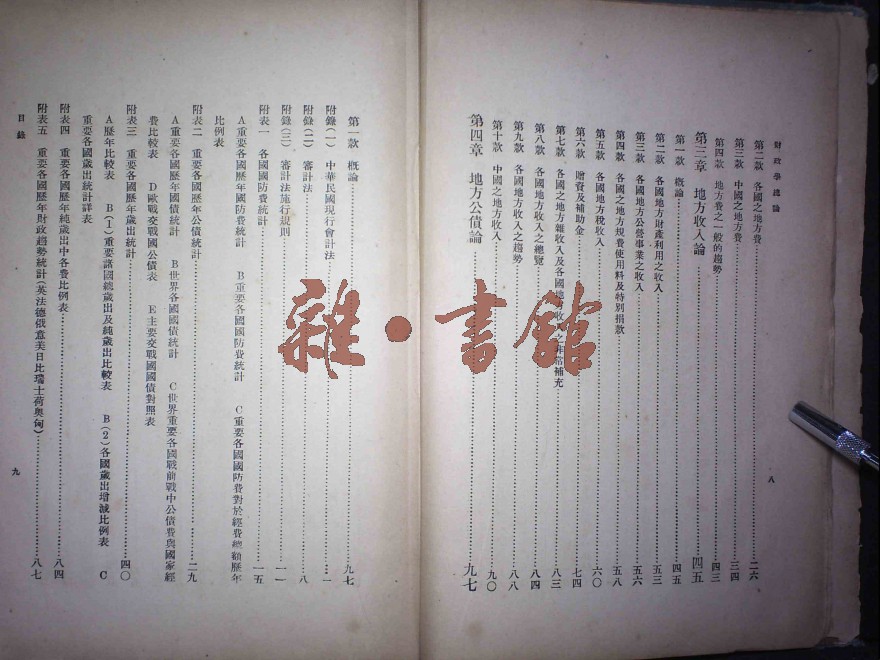 財政學總論
第二款 各國之地方費……二六
第三款 中國之地方費……三四
第四款 地方費之一般的趨勢……四三
第三章 地方收入論……四五
第一款 概論……四五
第二款 各國地方財產利用之收入……五三
第三款 各國地方公營事業之收入……五六
第四款 各國之地方規費使用料及特別捐款……五八
第五款 各國地方稅收入……六〇
第六款 贈資及補助金……七四
第七款 各國之地方雜收入及各國地方收入之非常補充……八三
第八款 各國地方收入之總覽……八四
第九款 各國地方收入之趨勢……八八
第十款 中國之地方收入……九〇
第四章 地方公債論……九七
八
第一款 概論……九七
附錄(一) 中華民國現行會計法……一
附錄(二) 審計法……八
附錄(三) 審計法施行規則……一一
附表一 各國國防費統計……一五
A重要各國歷年國防費統計 B重要各國國防費統計 C重要各國國防費對於經費總額歷年
比例表
附表二 重要各國歷年公債統計……二九
A重要各國歷年國債統計 B世界各國國債統計 C世界重要各國戰前戰中公債費與國家經
費比較表 D歐戰交戰國公債表 E主要交戰國國債對照表
附表三 重要各國歷年歲出統計……四〇
A歷年比較表 B(1)重要諸國總歲出及純歲出比較表 B(2)各國歲出增減比例表 C
重要各國歲出統計詳表
附表四 重要各國歷年純歲出中各費比例表……八四
附表五 重要各國歷年財政趨勢統計(英法德俄意美日比瑞士荷奧匈)……八七
目錄
九
雜·書館